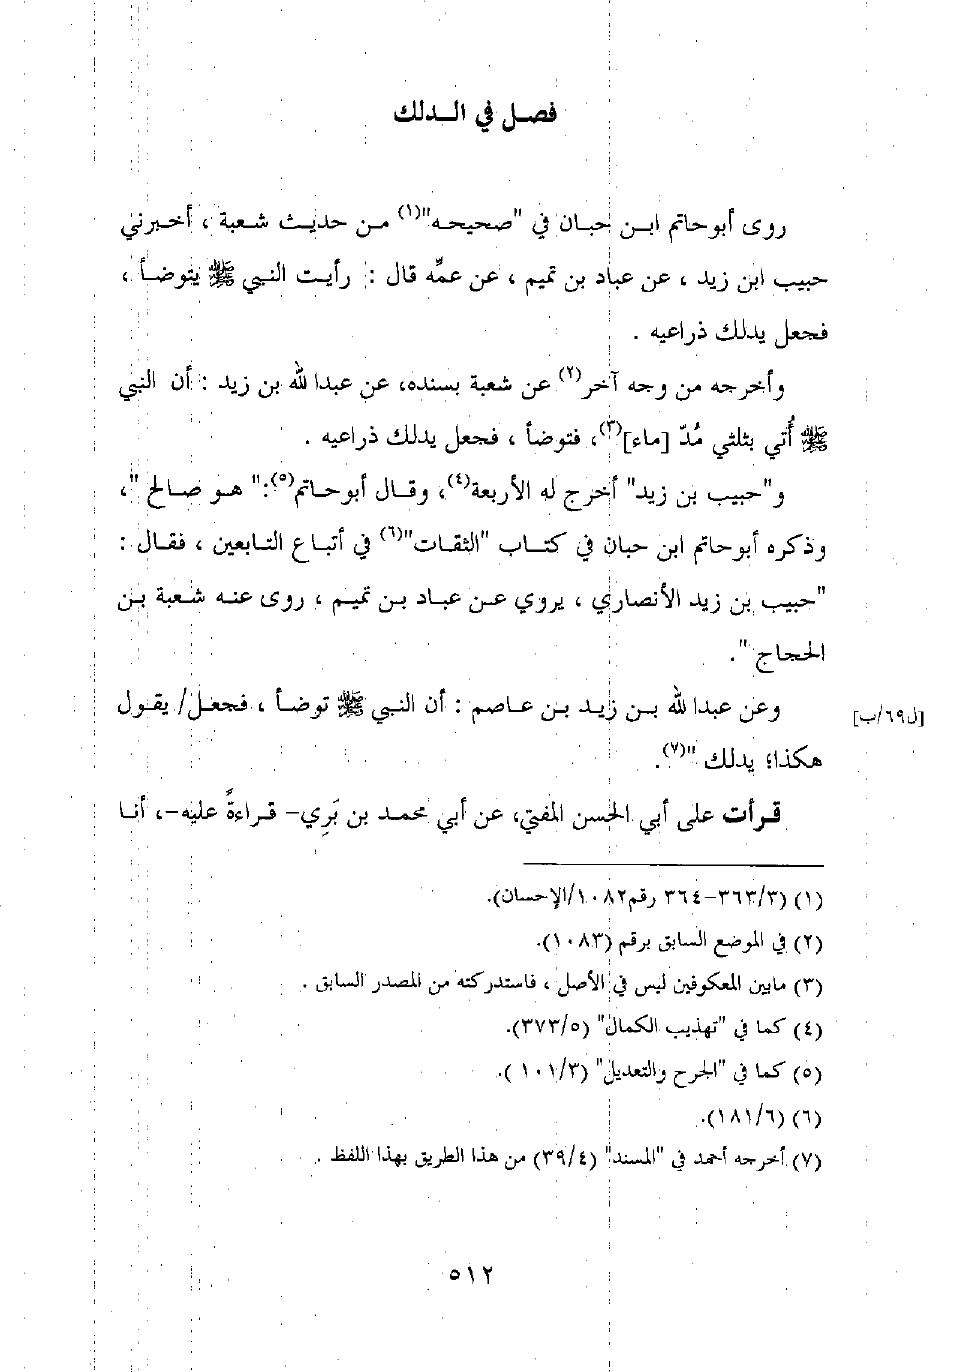 فصل في الدلك
روى أبوحاتم ابن حبان في "صحيحه"(١) من حديث شعبة ، أخبرني
حبيب ابن زيد ، عن عباد بن تميم ، عن عمِّه قال : رأيت النبي ﷺ يتوضأ ،
فجعل يدلك ذراعيه .
وأخرجه من وجه آخر(٢) عن شعبة بسنده، عن عبدالله بن زيد : أن النبي
ﷺ أُتي بثلثي مُدّ [ماء](٣)، فتوضأ ، فجعل يدلك ذراعيه .
و"حبيب بن زيد" أخرج له الأربعة(٤)، وقال أبوحاتم(٥):" هو صالح "،
وذكره أبوحاتم ابن حبان في كتاب "الثقات"(٦) في أتباع التابعين ، فقال :
"حبيب بن زيد الأنصاري ، يروي عن عباد بن تميم ، روى عنه شعبة بن
الحجاج ".
وعن عبدالله بن زيد بن عاصم : أن النبي ﷺ توضأ ، فجعل/ يقول
[ل٦٩/ب]
هكذا؛ يدلك "(٧).
قرأت على أبي الحسن المفتي، عن أبي محمد بن بَرِي– قراءةً عليه–، أنا
(١) (٣/٣٦٣–٣٦٤ رقم١٠٨٢/الإحسان).
(٢) في الموضع السابق برقم (١٠٨٣).
(٣) مابين المعكوفين ليس في الأصل ، فاستدركته من المصدر السابق .
(٤) كما في "تهذيب الكمال" (٥/٣٧٣).
(٥) كما في "الجرح والتعديل" (٣/١٠١ ).
(٦) (٦/١٨١).
(٧) أخرجه أحمد في "المسند" (٤/٣٩) من هذا الطريق بهذا اللفظ .
٥١٢